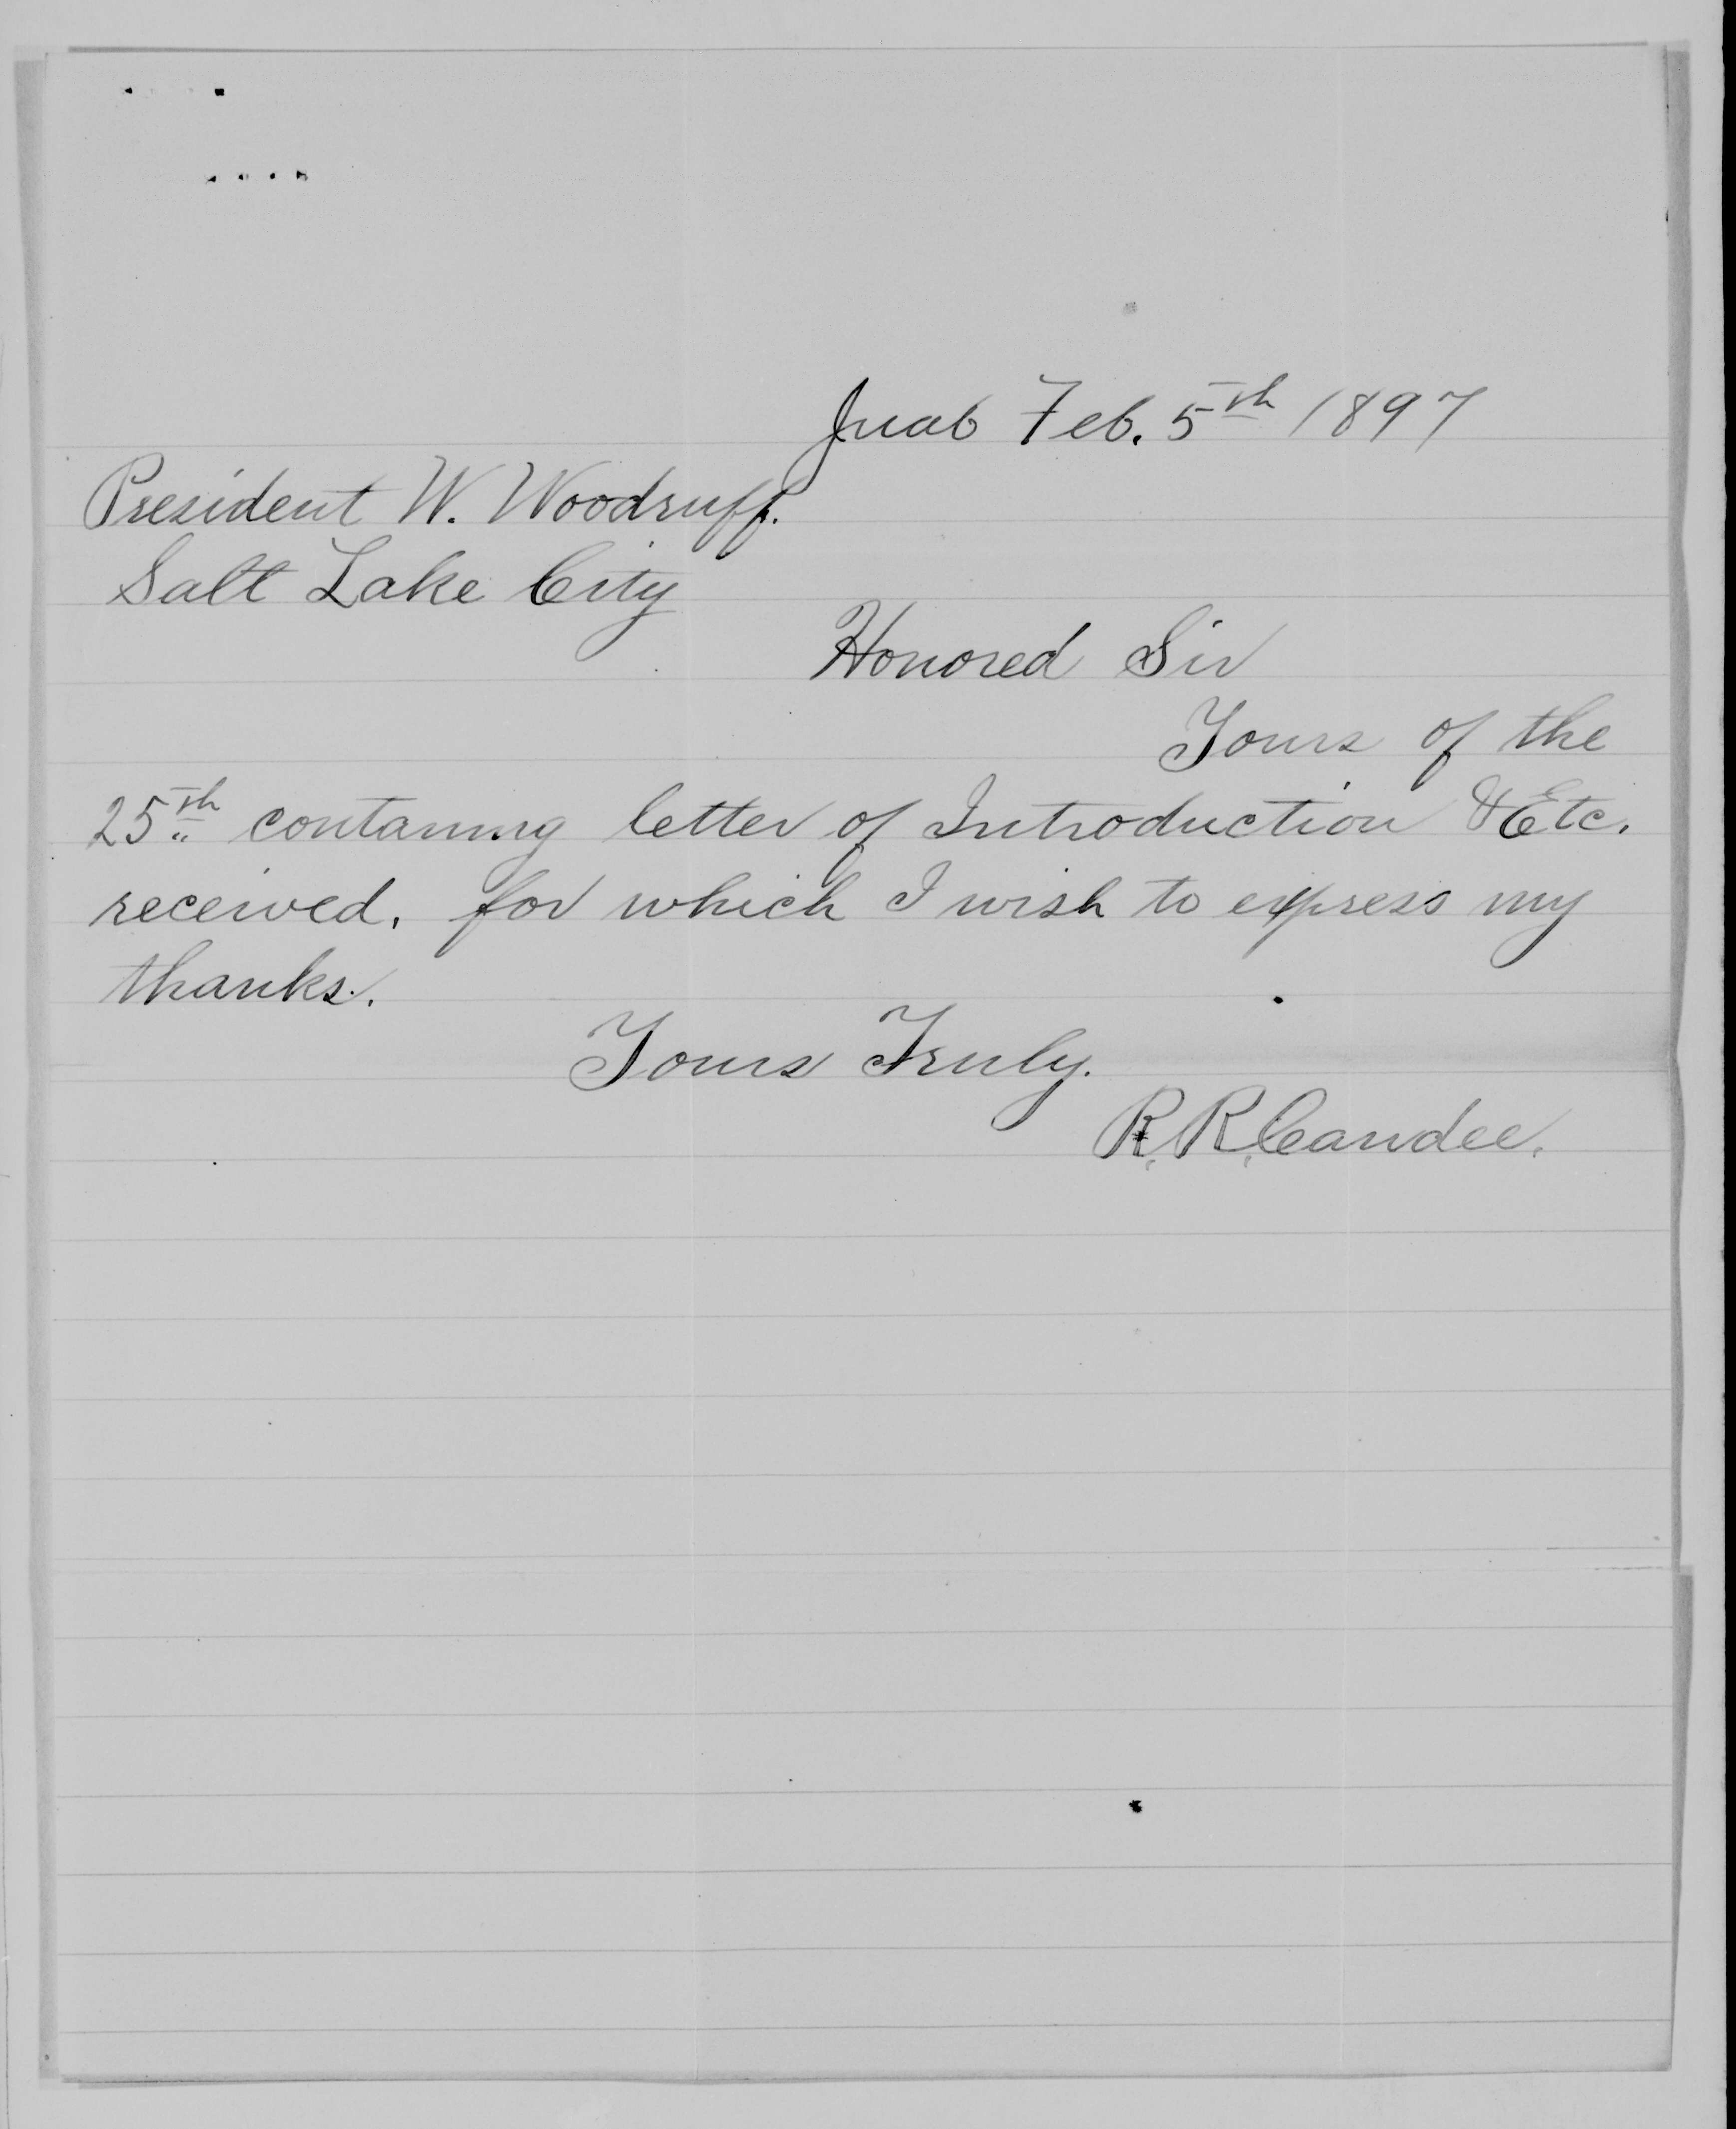 Juab Feb. 5th 1897
President W. Woodruff.
Salt Lake City
Honored Sir
Yours of the
25th contaning letter of Introduction & Etc.
received. for which I wish to express my
thanks.
Yours Truly.
R. R. Candee.